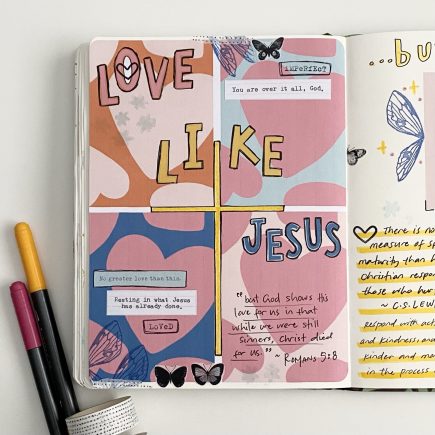 LOVE
imPERfECT
You are over it all, God.
LIKE
JESUS
No greater love than this.
Resting in what Jesus
has already done.
LOVED
"but God shows His
love for us in that
while we were still
sinners, Christ died
for us." ~ ROMANS 5:8
...bu
There is no
measure of sp
maturity than h
Christian respo
those who hur
~ C.S. LEW
respond with act
and kindness, an
kinder and mo
in the process